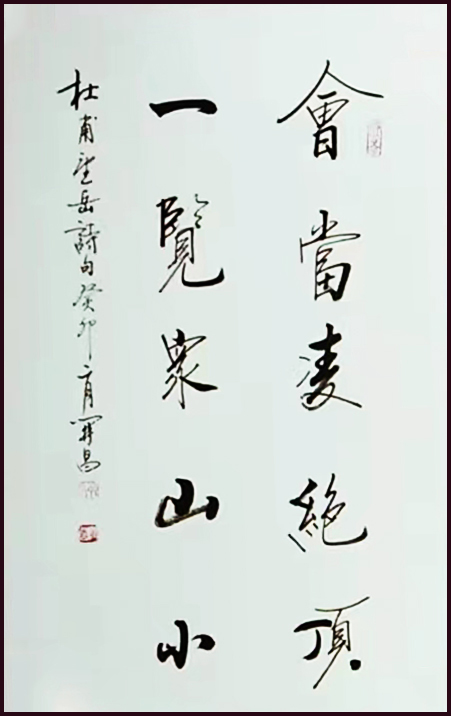 會當凌絕頂
一覽衆山小
杜甫望岳詩句癸卯二月開昌